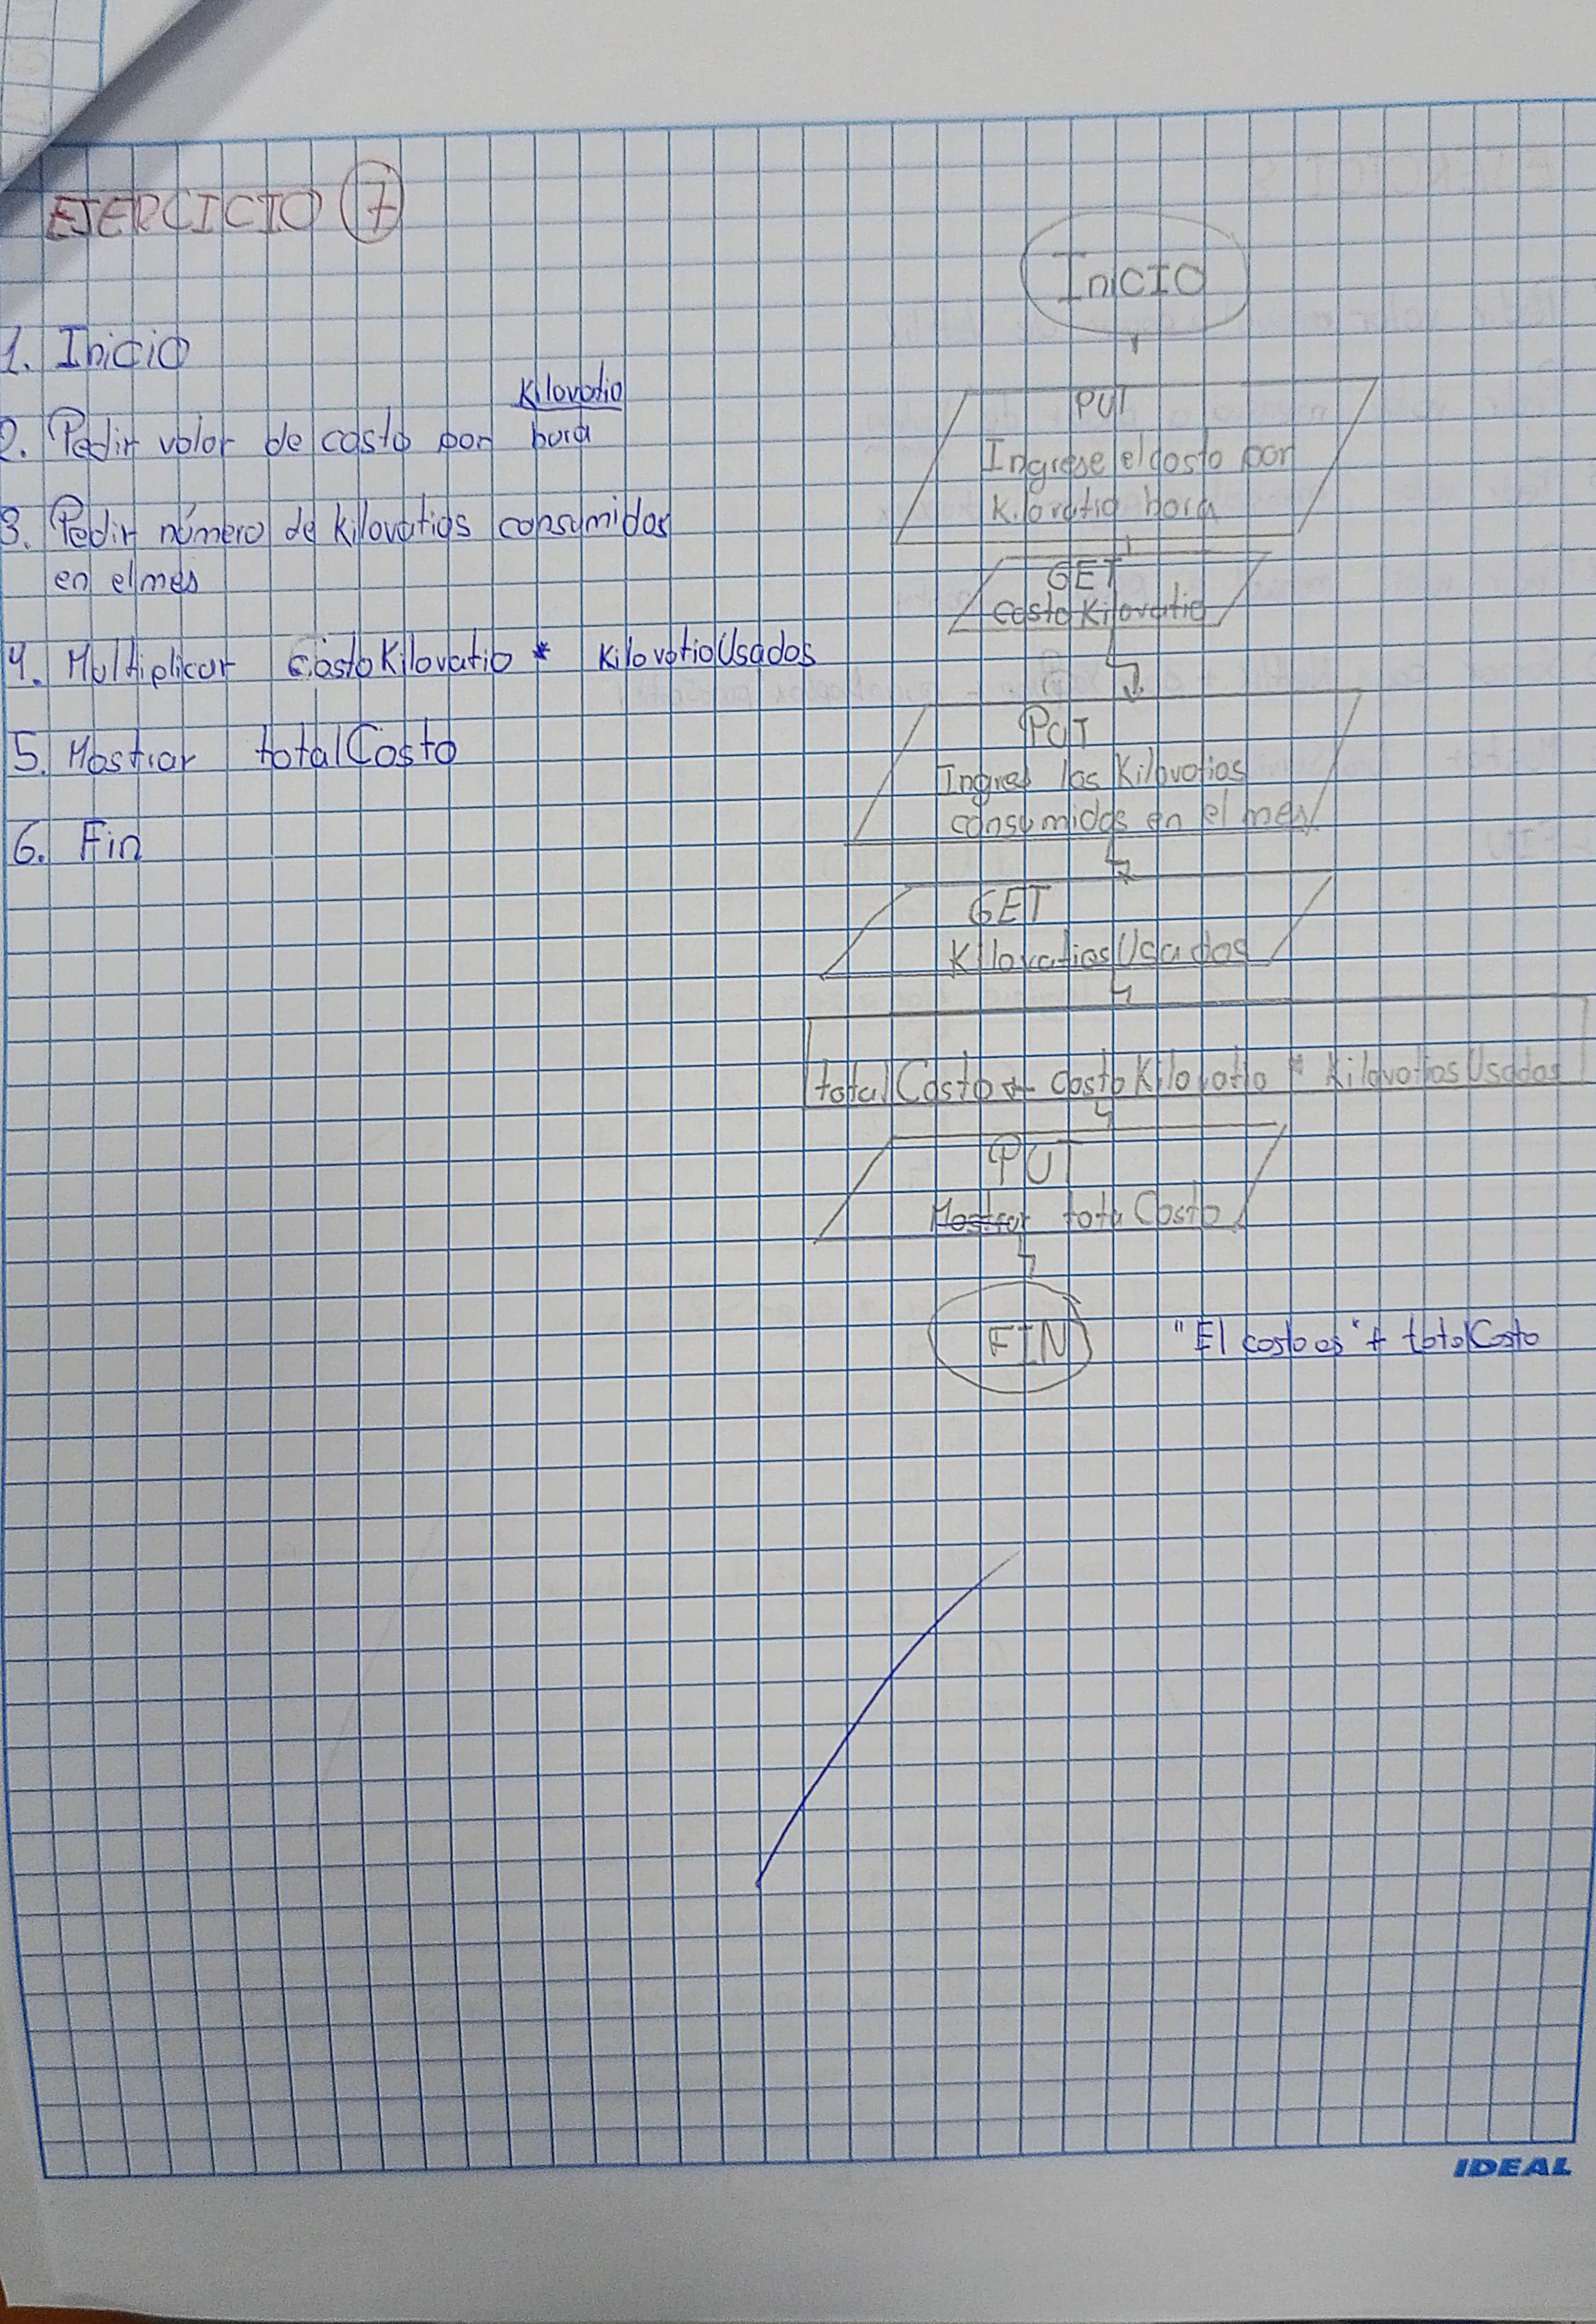 EJERCICIO 7
1. Inicio
Kilovatio
2. Pedir valor de costo por hora
3. Pedir número de kilovatios consumidos
en el mes
4. Multiplicar costoKilovatio * KilovatioUsados
5. Mostrar totalCosto
6. Fin
InICIO
PUT
Ingrese el costo por
kilovatio hora
GET
costoKilovatio
PUT
Ingres los Kilovatios
consumidos en el mes
GET
KilovatiosUsados
totalCosto ← costoKilovatio * KilovatiosUsados
PUT
Mostrar totaCosto
FIN
"El costo es" + totalCosto
IDEAL